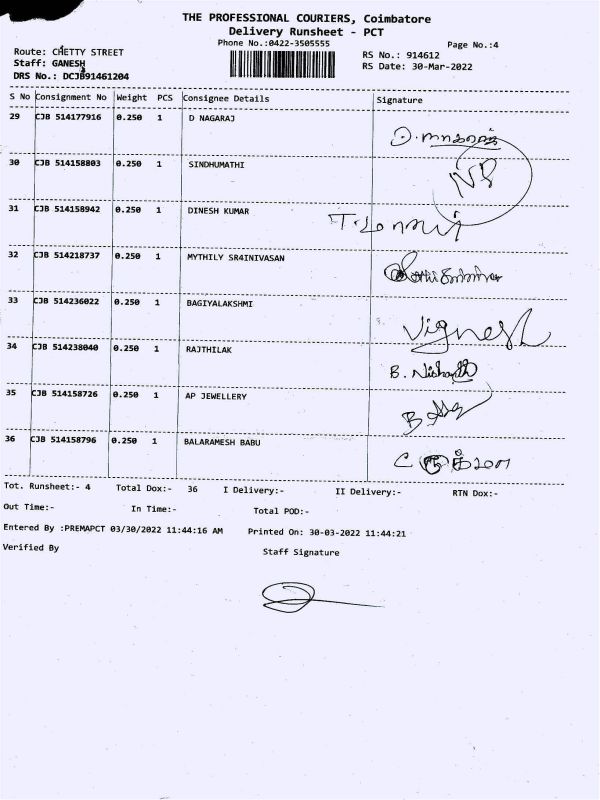 THE PROFESSIONAL COURIERS, Coimbatore
Delivery Runsheet - PCT
Phone No.:0422-3505555
Page No.:4
Route: CHETTY STREET
RS No.: 914612
Staff: GANESH
RS Date: 30-Mar-2022
DRS No.: DCJB91461204
S No Consignment No Weight PCS Consignee Details Signature
29 CJB 514177916 0.250 1 D NAGARAJ
30 CJB 514158803 0.250 1 SINDHUMATHI
31 CJB 514158942 0.250 1 DINESH KUMAR
32 CJB 514218737 0.250 1 MYTHILY SR4INIVASAN
33 CJB 514236022 0.250 1 BAGIYALAKSHMI Vignesh
34 CJB 514238040 0.250 1 RAJTHILAK B. Nishanth
35 CJB 514158726 0.250 1 AP JEWELLERY
36 CJB 514158796 0.250 1 BALARAMESH BABU
Tot. Runsheet:- 4 Total Dox:- 36 I Delivery:- II Delivery:- RTN Dox:-
Out Time:- In Time:- Total POD:-
Entered By :PREMAPCT 03/30/2022 11:44:16 AM Printed On: 30-03-2022 11:44:21
Verified By Staff Signature